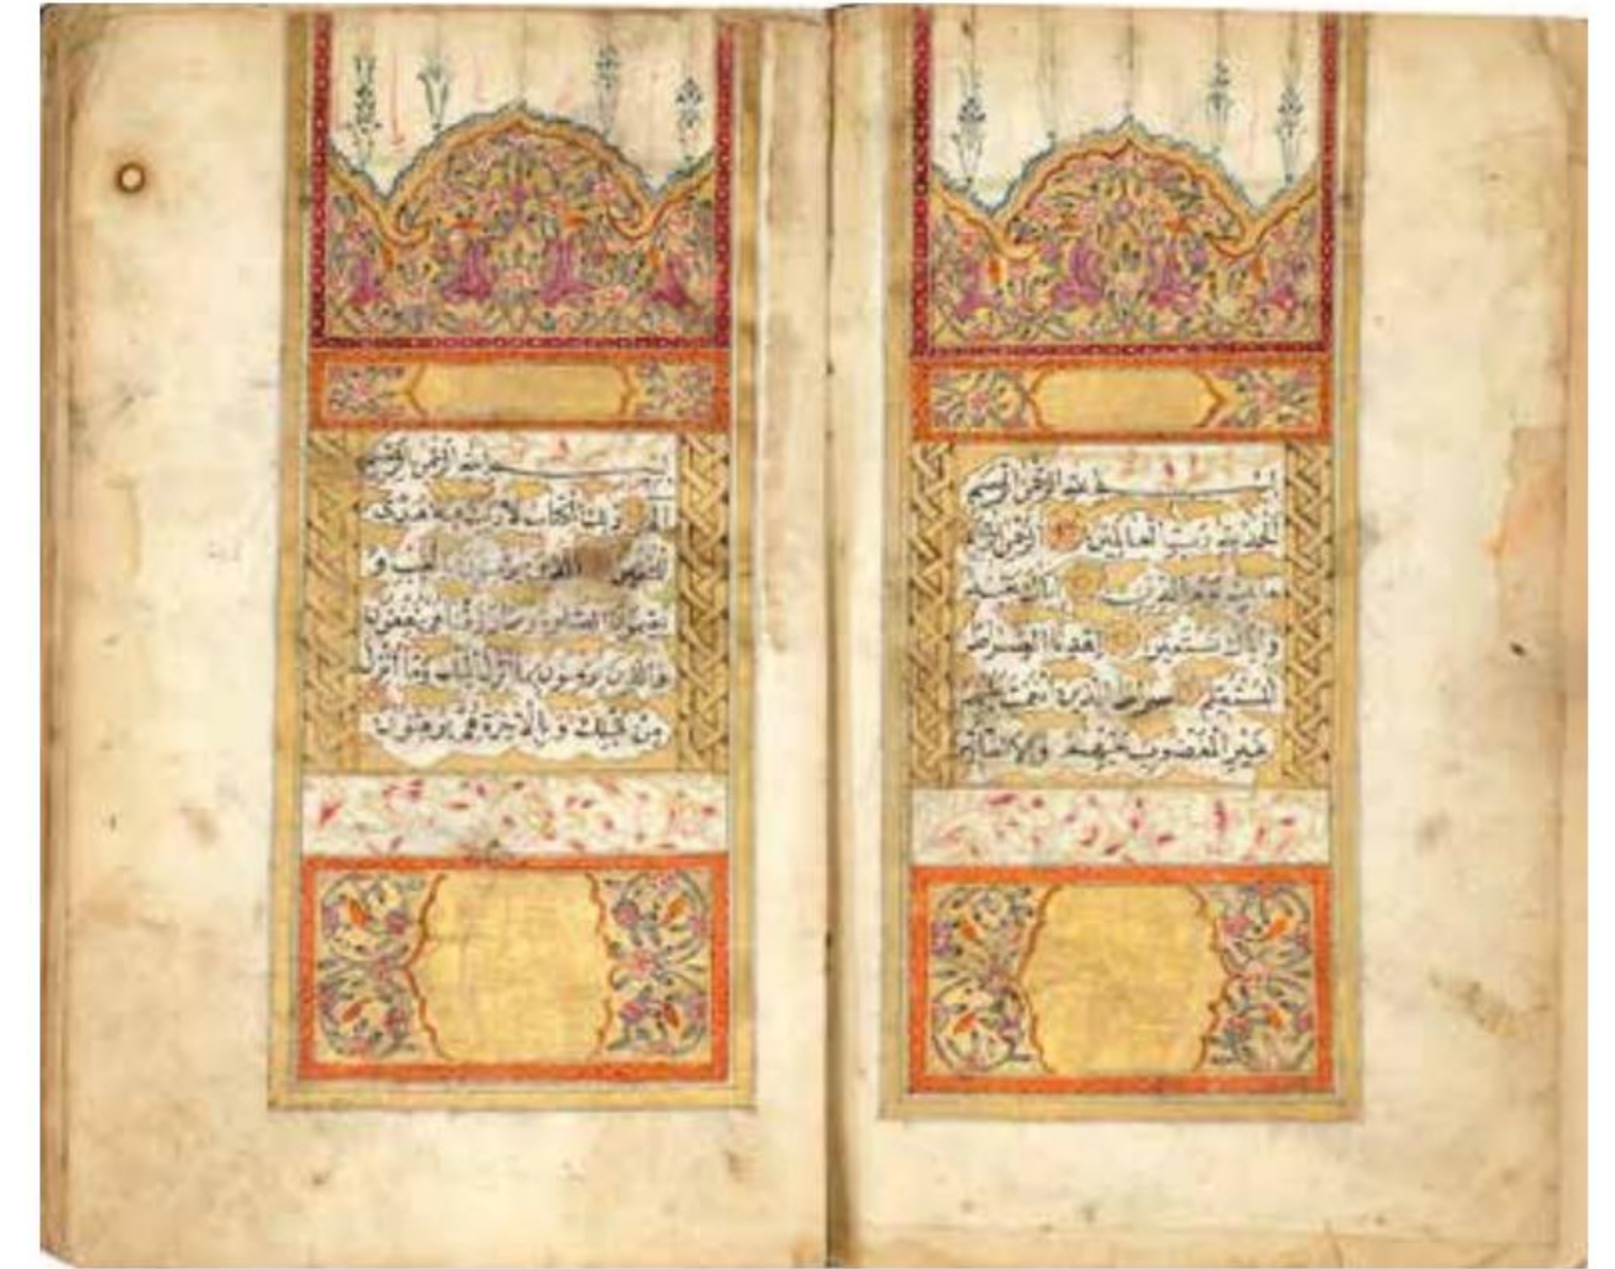 بسم الله الرحمن الرحيم
الحمد لله رب العالمين الرحمن الرحيم
مالك يوم الدين إياك نعبد
وإياك نستعين اهدنا الصراط
المستقيم صراط الذين أنعمت عليهم
غير المغضوب عليهم ولا الضالين
بسم الله الرحمن الرحيم
الم ذلك الكتاب لا ريب فيه هدى
للمتقين الذين يؤمنون بالغيب و
يقيمون الصلوة ومما رزقناهم ينفقون
والذين يؤمنون بما أنزل إليك وما أنزل
من قبلك وبالآخرة هم يوقنون